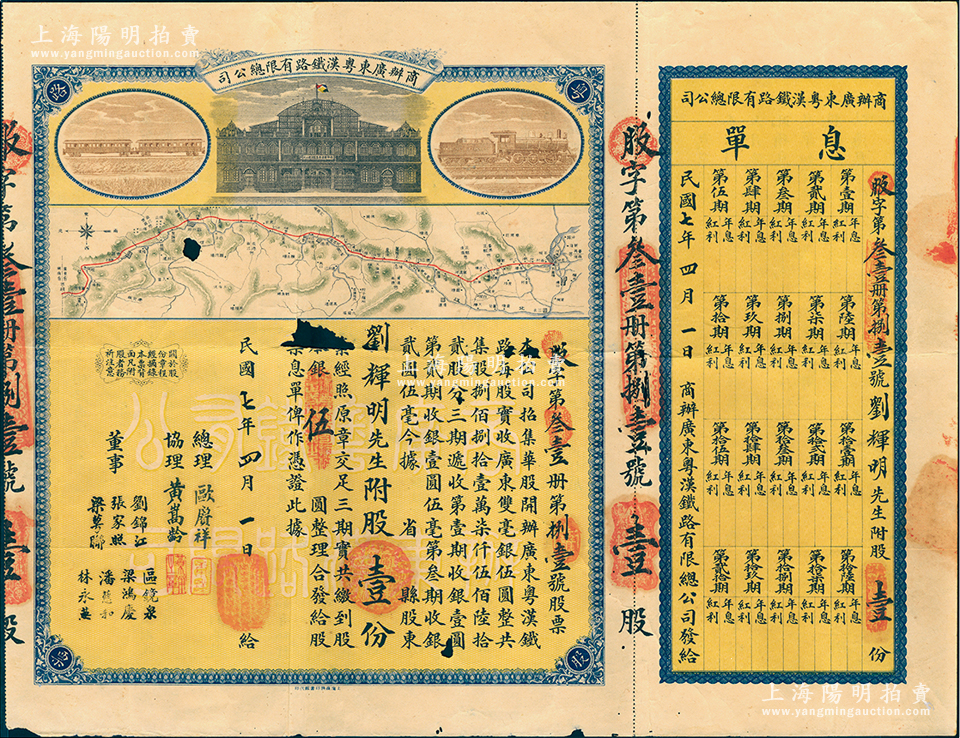 上海陽明拍賣
www.yangmingauction.com
商辦廣東粵漢鐵路有限總公司
粵
路
股字第叁壹冊第捌壹號股票
本公司招集華股開辦廣東粵漢鐵
路每股實收廣東雙毫銀伍圓整共
集股捌佰捌拾壹萬柒仟伍佰陸拾
貳股分三期遞收第壹期收銀壹圓
第貳期收銀壹圓伍毫第叁期收銀
貳圓伍毫今據 省 縣股東
劉輝明先生附股壹份
業經照原章交足三期實共繳到股
本銀 伍 圓整理合發給股
票息單俾作憑證此據
民國七年四月一日給
總理 歐賡祥
協理 黃蒿齡
董事
劉錦江
張家照
區鏡泉
梁鴻慶
林永
關於股
份章程
經摘錄
本票背
面凡附
股者務
祈注意
股
股字第叁壹冊第捌壹號 壹股
股字第叁壹冊第捌壹號 壹股
商辦廣東粵漢鐵路有限總公司
息單
股字第叁壹冊第捌壹號劉輝明先生附股壹份
第壹期 年息 紅利
第貳期 年息 紅利
第叁期 年息 紅利
第肆期 年息 紅利
第伍期 年息 紅利
第陸期 年息 紅利
第柒期 年息 紅利
第捌期 年息 紅利
第玖期 年息 紅利
第拾期 年息 紅利
第拾壹期 年息 紅利
第拾貳期 年息 紅利
第拾叁期 年息 紅利
第拾肆期 年息 紅利
第拾伍期 年息 紅利
第拾陸期 年息 紅利
第拾柒期 年息 紅利
第拾捌期 年息 紅利
第拾玖期 年息 紅利
第貳拾期 年息 紅利
民國七年四月一日 商辦廣東粵漢鐵路有限總公司發給
上海陽明拍賣
www.yangmingauction.com
上海陽明拍賣
www.yangmingauction.com